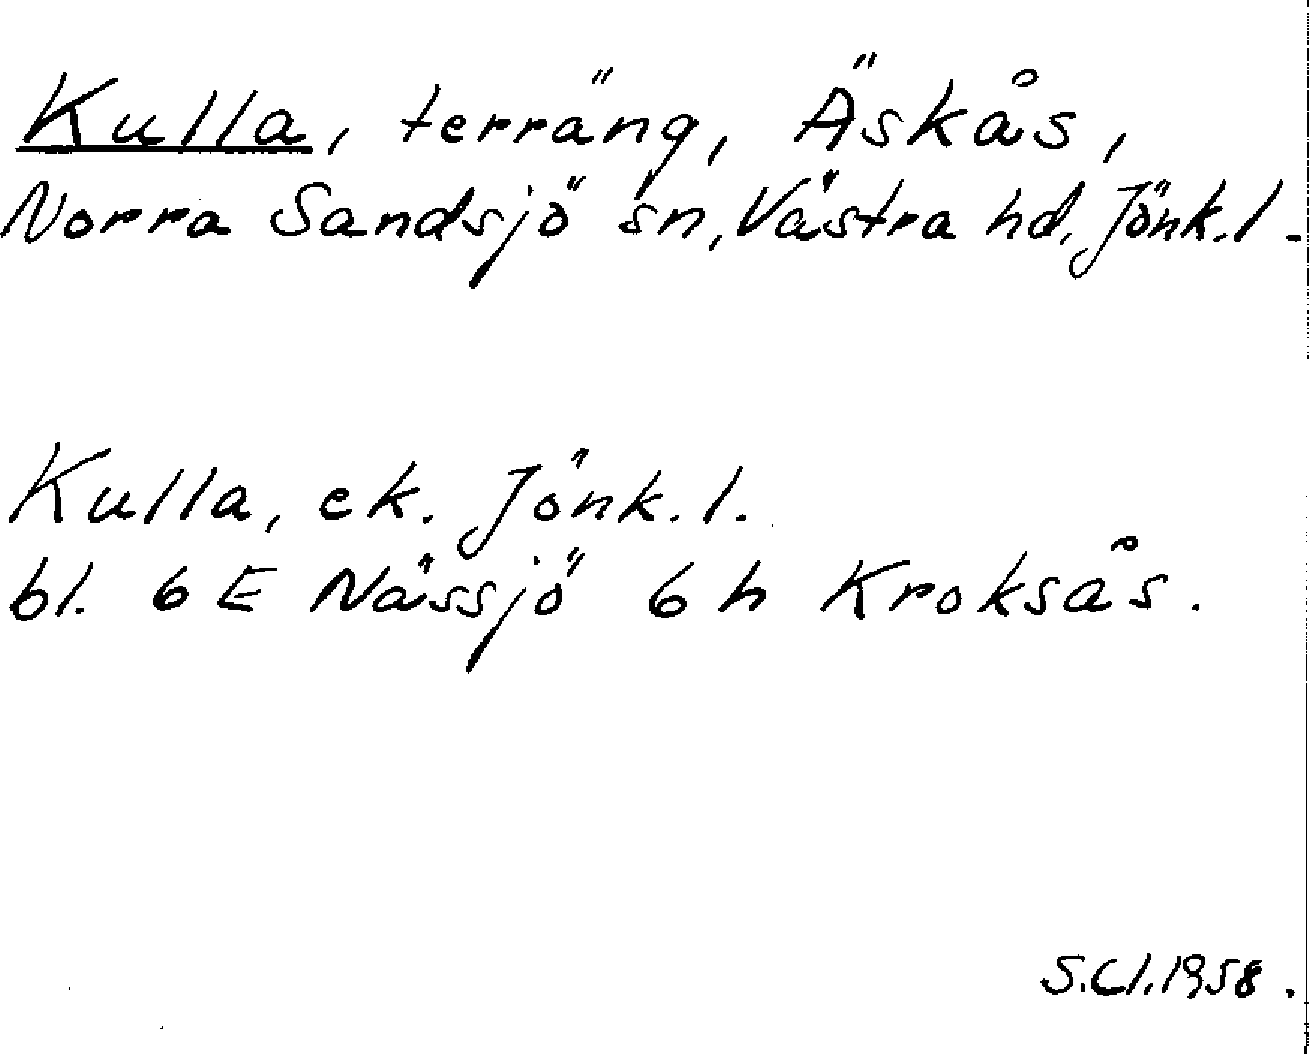 Kulla, terräng, Äskås,
Norra Sandsjö sn, Västra hd, Jönk.l.
Kulla, ek. Jönk.l.
bl. 6 E Nässjö 6 h Kroksås.
S.Cl.1958.